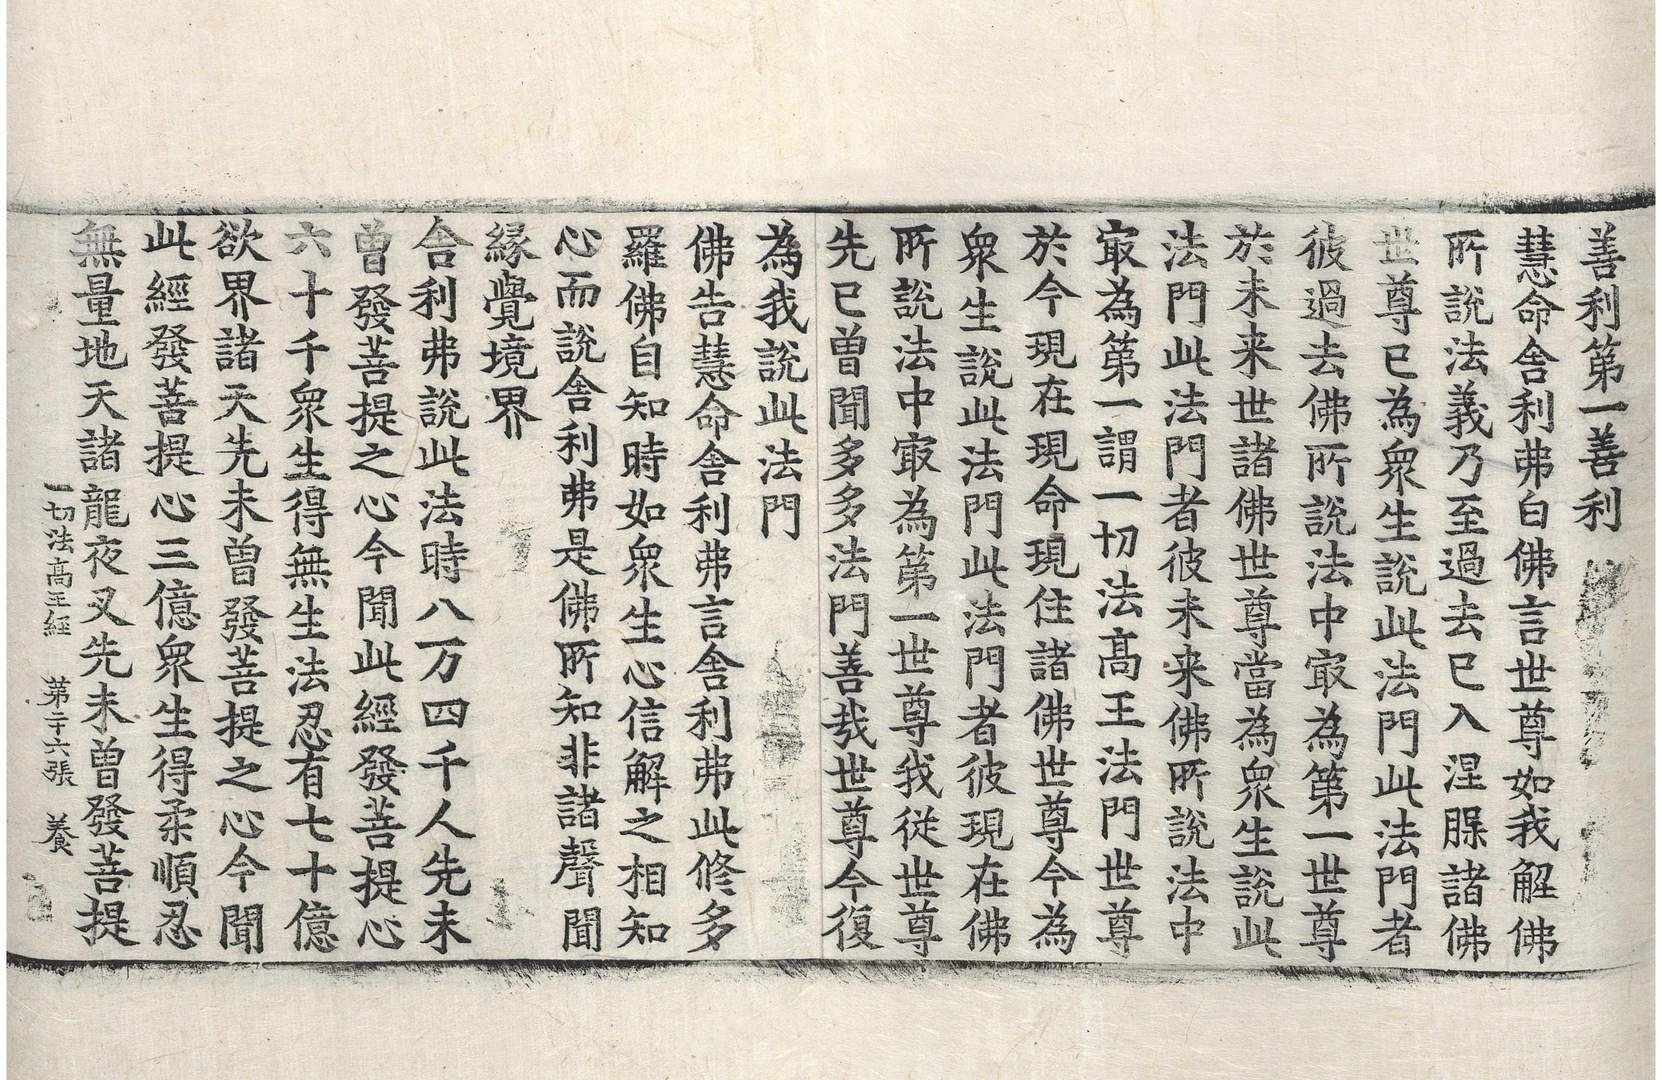 善利第一善利
慧命舍利弗白佛言世尊如我解佛
所說法義乃至過去已入涅脲諸佛
世尊已為衆生說此法門此法門者
彼過去佛所說法中㝡為第一世尊
於未来世諸佛世尊當為衆生說此
法門此法門者彼未来佛所說法中
㝡為第一謂一切法髙王法門世尊
於今現在現命現住諸佛世尊今為
衆生說此法門此法門者彼現在佛
所說法中㝡為第一世尊我従世尊
先已曾聞多多法門善哉世尊今復
為我說此法門
佛告慧命舍利弗言舍利弗此修多
羅佛自知時如衆生心信解之相知
心而說舍利弗是佛所知非諸聲聞
緣覺境界
舍利弗說此法時八万四千人先未
曾發菩提之心今聞此經發菩提心
六十千衆生得無生法忍有七十億
欲界諸天先未曾發菩提之心今聞
此經發菩提心三億衆生得柔順忍
無量地天諸龍夜叉先未曾發菩提
一切法髙王經 第二十六張 養